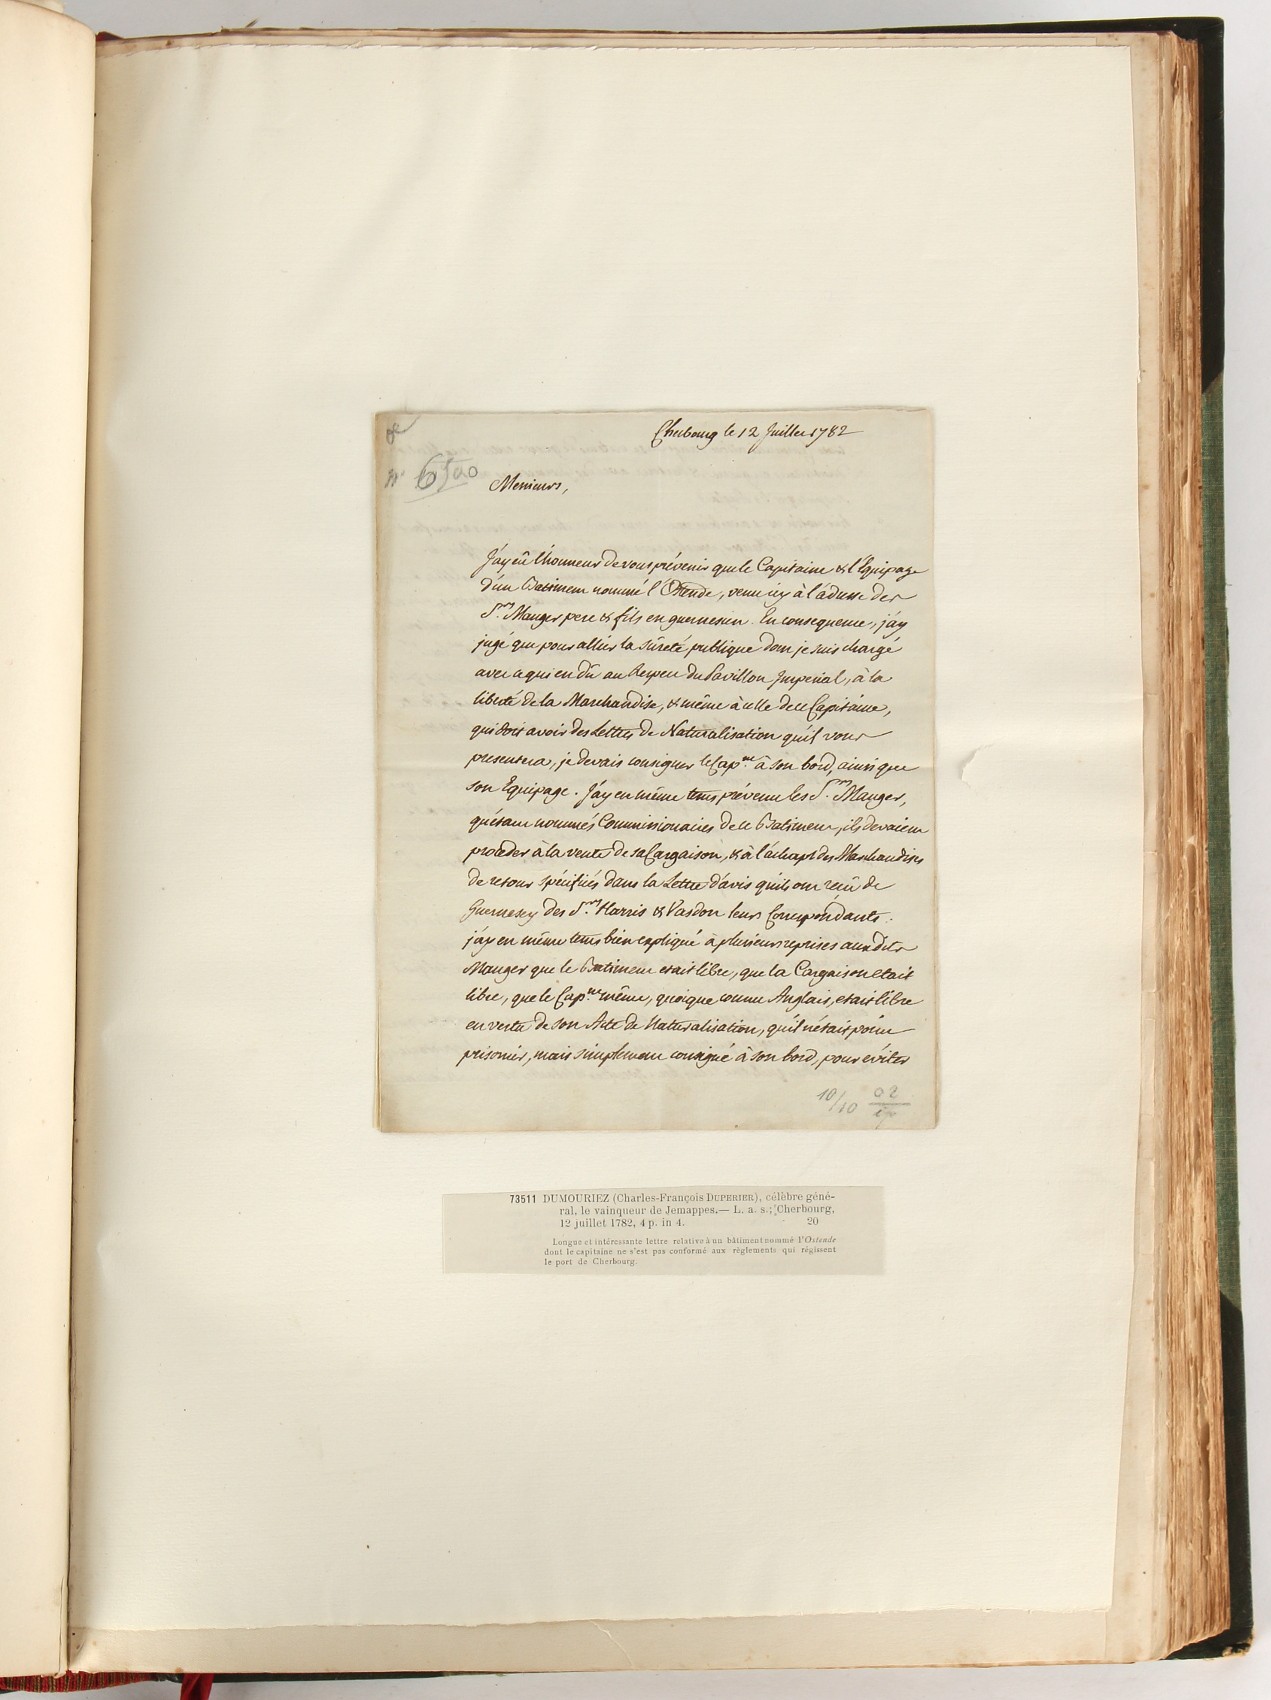 Cherbourg le 12 Juillet 1782
6500
Messieurs,
J'ay eû l'honneur de vous prévenir que le Capitaine & l'Equipage
d'un Batiment nommé l'Ostende, venu icy à l'adresse des
Srs. Mauger pere & fils en guernesien. En consequence, j'ay
jugé que pour allier la sûreté publique dont je suis chargé
avec ce qui en dû au Respect du Pavillon Imperial, à la
liberté de la Marchandise, & même à celle de ce Capitaine,
qui doit avoir des Lettres de Naturalisation qu'il vous
presentera, je devais consigner le Capne. à son bord, ainsi que
son Equipage. J'ay en même tems prévenu les Srs. Mauger,
qu'étant nommés Commissionaires de ce Batiment, ils devaient
proceder à la vente de sa Cargaison, & à l'achapt des Marchandises
de retour spécifiés dans la Lettre d'avis qu'ils ont reçû de
Guernesey des Srs. Harris & Vasdon leurs Correspondants.
j'ay en même tems bien expliqué à plusieurs reprises auxdits
Mauger que le Batiment etait libre, que la Cargaison etait
libre, que le Capne. même, quoique connu Anglais, etait libre
en vertu de son Acte de Naturalisation, qu'il n'était point
prisonier, mais simplement consigné à son bord, pour éviter
10/10 02
73511 DUMOURIEZ (Charles-François DUPERIER), célèbre géné-
ral, le vainqueur de Jemappes.— L. a. s.; Cherbourg,
12 juillet 1782, 4 p. in 4. 20
Longue et intéressante lettre relative à un bâtiment nommé l'Ostende
dont le capitaine ne s'est pas conformé aux règlements qui régissent
le port de Cherbourg.